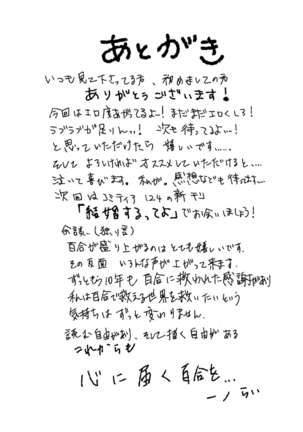 あとがき
いつも見て下さってる方、初めましての方
ありがとうございます!
今回はエロ度増してるよ!まだまだエロくしろ!
ラブラブが足りん!!次も待ってるよー!
と思っていただけたら嬉しいです……
そしてよろしければオススメしていただけると…
泣いて喜びます。私が。感想なども待ってます…
次回はコミティア124の新刊
「結婚するってよ」でお会いしましょう!
余談。(独り言)
百合が盛り上がるのはとても嬉しいです。
その反面 いろんな声が上がって来ます。
ずっともう10年も百合に救われた感謝があり
私は百合で救える世界を救いたいという
気持ちはずっと変わりません。
読む自由があり、そして描く自由がある
これからも
心に届く百合を…
一ノ らい